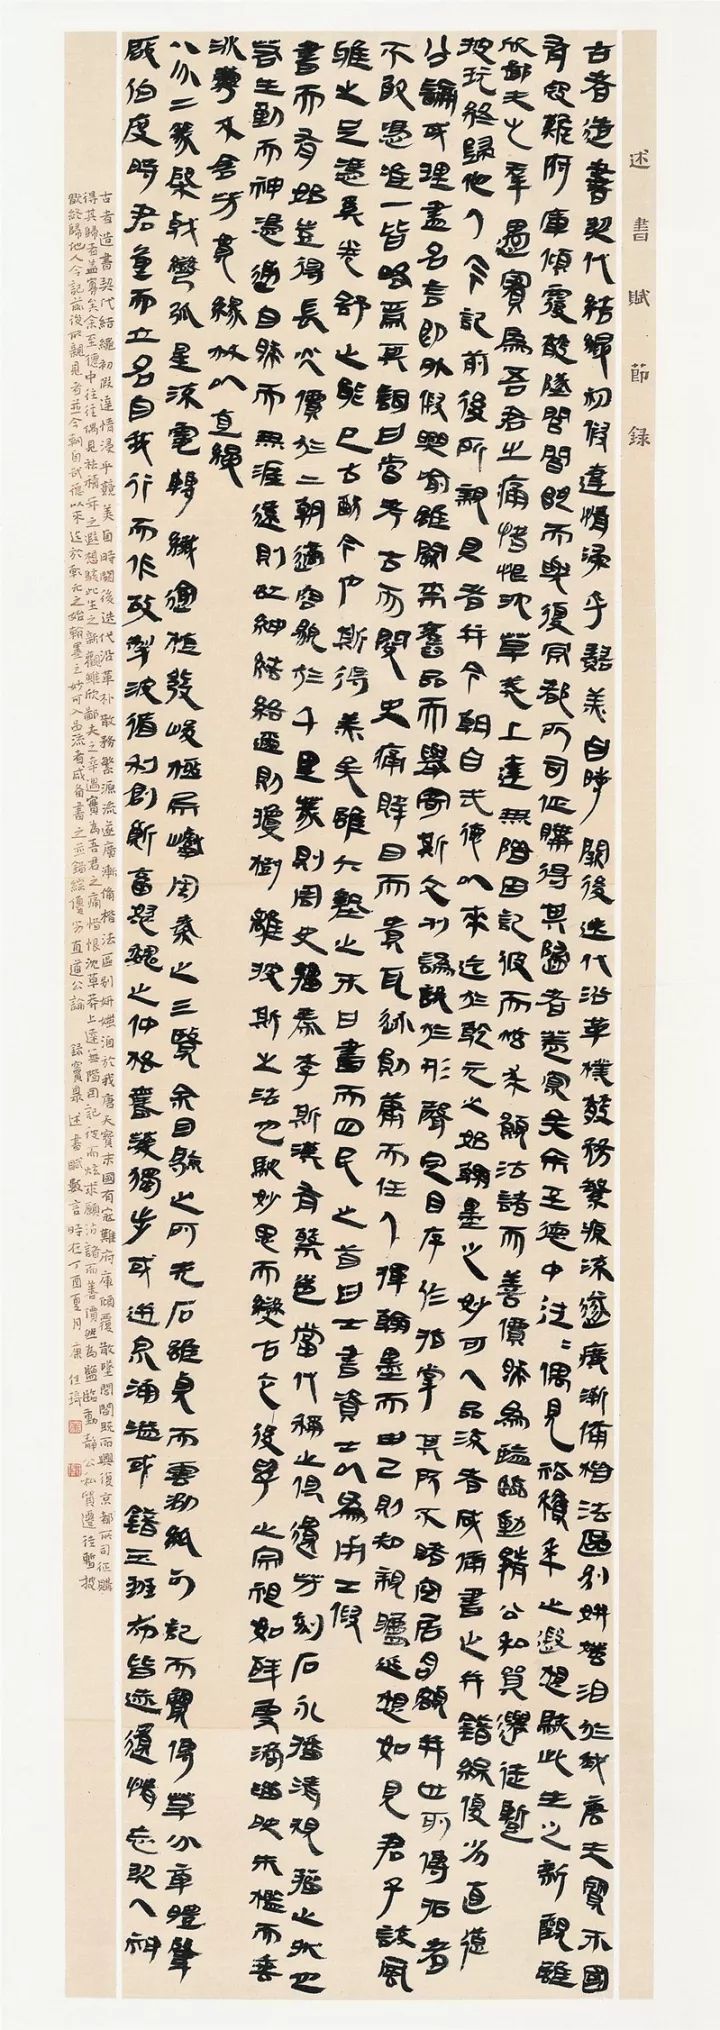 述書賦節錄
古者造書契代結繩初假達情浸乎競美自時闕後迭代沿革樸散務繁源流遂廣漸備楷法區別妍媸洎於我唐天寶末國
有寇難府庫傾覆散墜閭閻既而興復京都所司征購得其歸者蓋寡矣余至德中往往偶見祛積年之遐想駭此生之新觀雖
欣鄙夫之幸遇實爲吾君之痛惜恨沈草莽上達無階因記彼而炫求願沽諸而善價然爲鑒臨動靜公私貿遷徒暫
披玩終歸他人今記前後所親見者并今朝自武德以來迄於乾元之始翰墨之妙可入品流者咸備書之并錯綜優劣直道
公論或理盡名言即外假興喻雖闕乘舊品而舉寄斯文刊訛誤於形聲定目存作指掌其所不睹空居名額并世所傳拓者
不敢憑准一皆略焉其詞曰當考古而閱史痛賤目而貴耳跡勛庸而任人揮翰墨而由己則知親矚延想如見君子談風
雖之足憑異卷舒之能已古猷今門斯得美矣雖六藝之末曰書而四民之首曰士書資士以爲用士假
書而有始豈得長光價於一朝適容貌於千里篆則周史籀秦李斯漢有蔡邕當代稱之俱遺芳刻石永播清規籀之狀也
若生動而神憑通自然而無涯遠則虹紳結絡邇則瓊樹離披斯之法也馭妙思而變古立後學之宗祖如殘雪滴溜映朱檻而垂
冰蔓木含芳貫綠林以直繩
八分二篆棨戟彎弧星流電轉纖逾植髮峻極層巒周秦之三賢余目驗之所先石雖貞而雲泐紙可記而寶傳草分章體肇
起伯度時君重而立名自我行而作故掣波循利創新奮怒魏之仲將奮藻獨步或迸泉涌溢或錯玉班布皆遺情忘契入神
古者造書契代結繩初假達情浸乎競美自時闕後迭代沿革朴散務繁源流遂廣漸備楷法區別妍媸洎於我唐天寶末國有寇難府庫傾覆散墜閭閻既而興復京都所司征購
得其歸者蓋寡矣余至德中往往偶見祛積年之遐想駭此生之新觀雖欣鄙夫之幸遇實爲吾君之痛惜恨沈草莽上達無階因記彼而炫求願沽諸而善價然爲鑒臨動靜公私貿遷徒暫披
翫終歸他人今記前後所親見者並今朝自武德以來迄於乾元之始翰墨之妙可入品流者咸備書之並錯綜優劣直道公論 錄竇臮述書賦數言時在丁酉夏月康佳琦